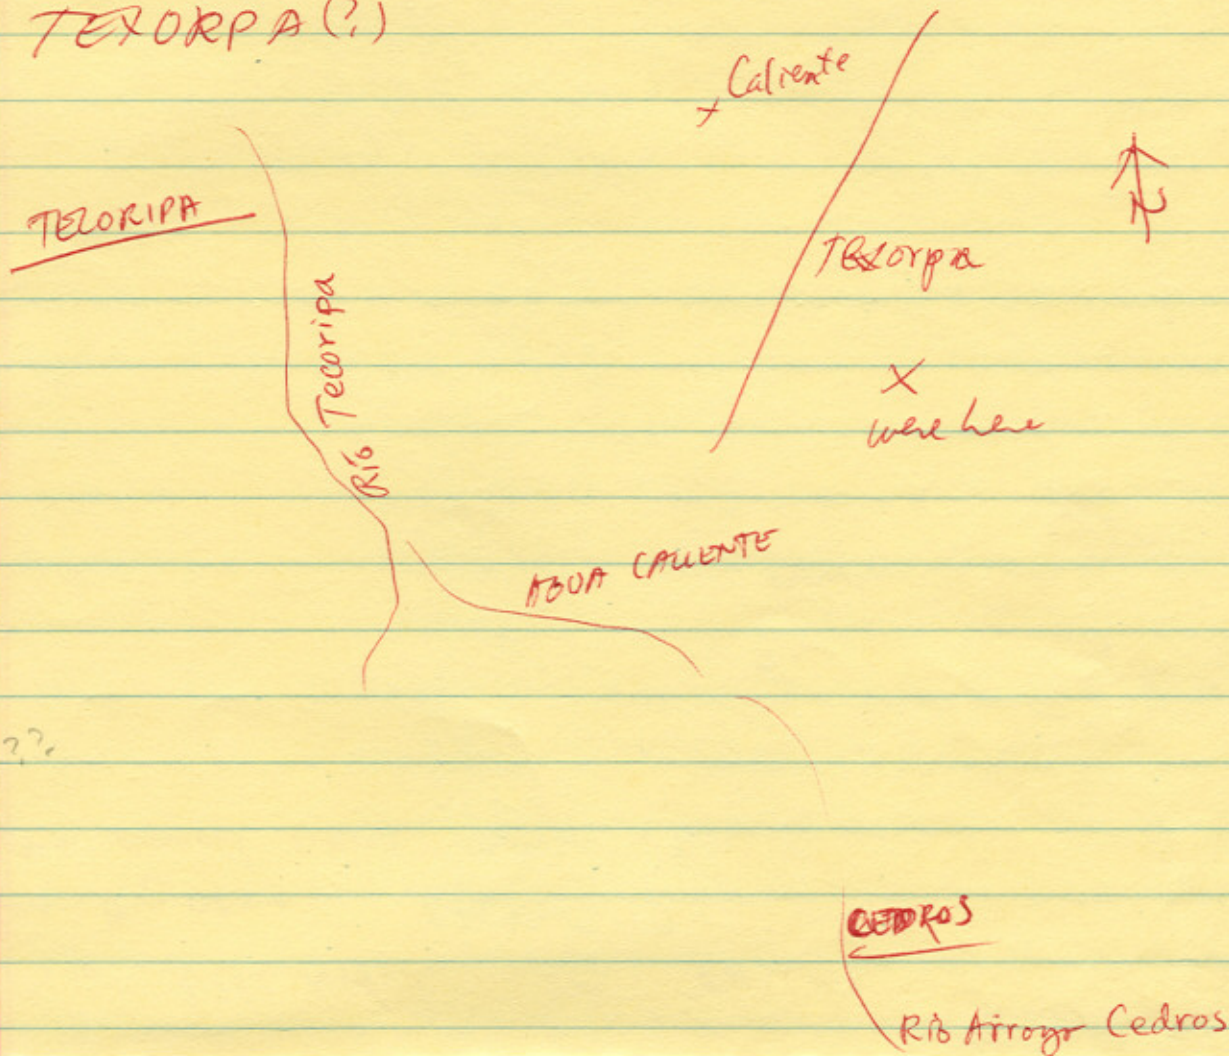 TEXORPA (?)
Caliente
N
TECORIPA
Texorpa
Río Tecoripa
were here
AGUA CALIENTE
??
CEDROS
Río Arroyo Cedros